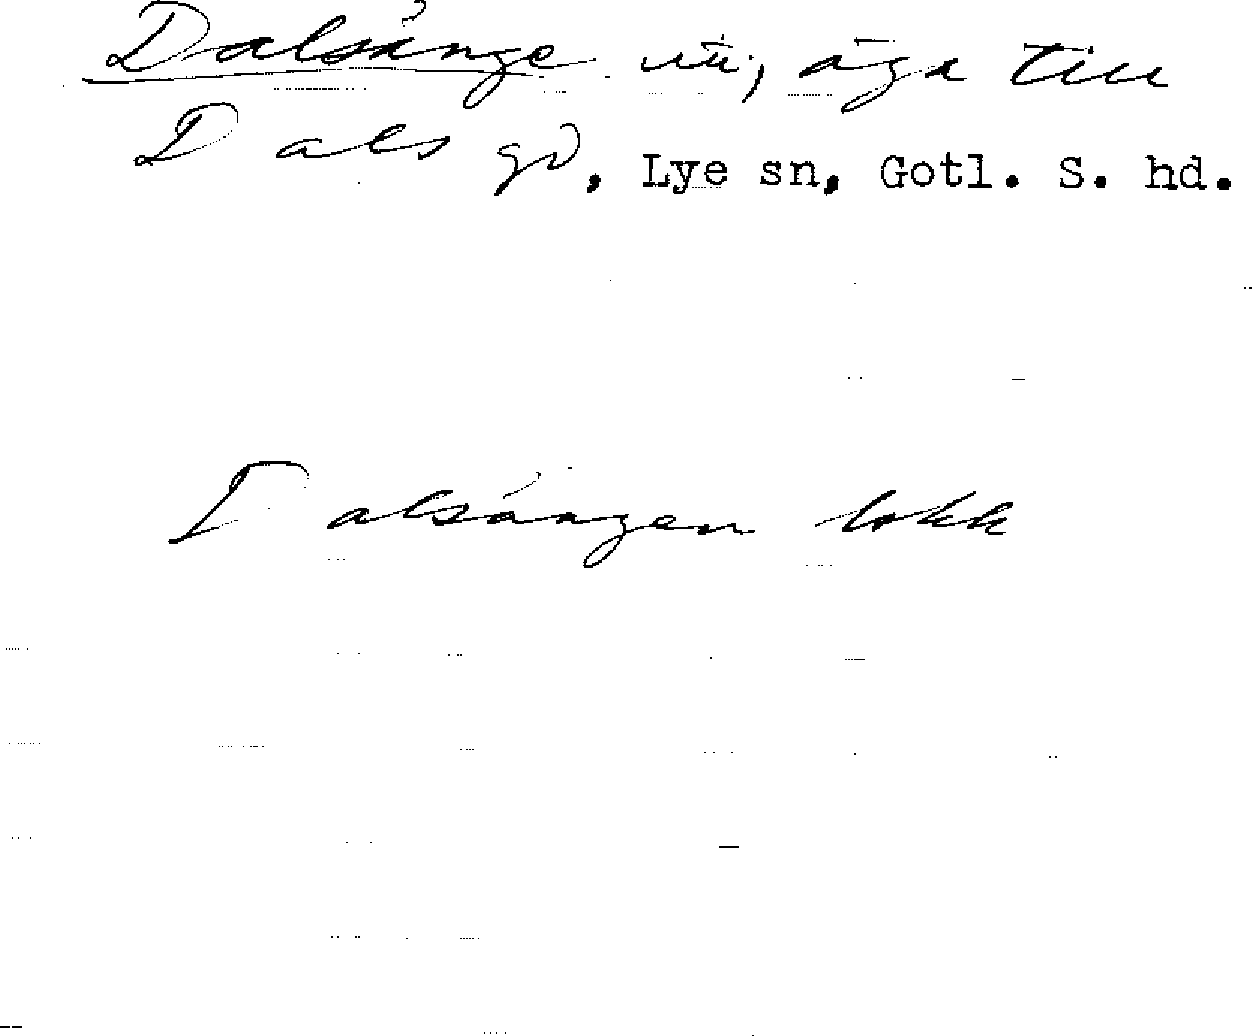 Dalsänge äga till
Dals gd, Lye sn, Gotl. S. hd.
Dalsängen